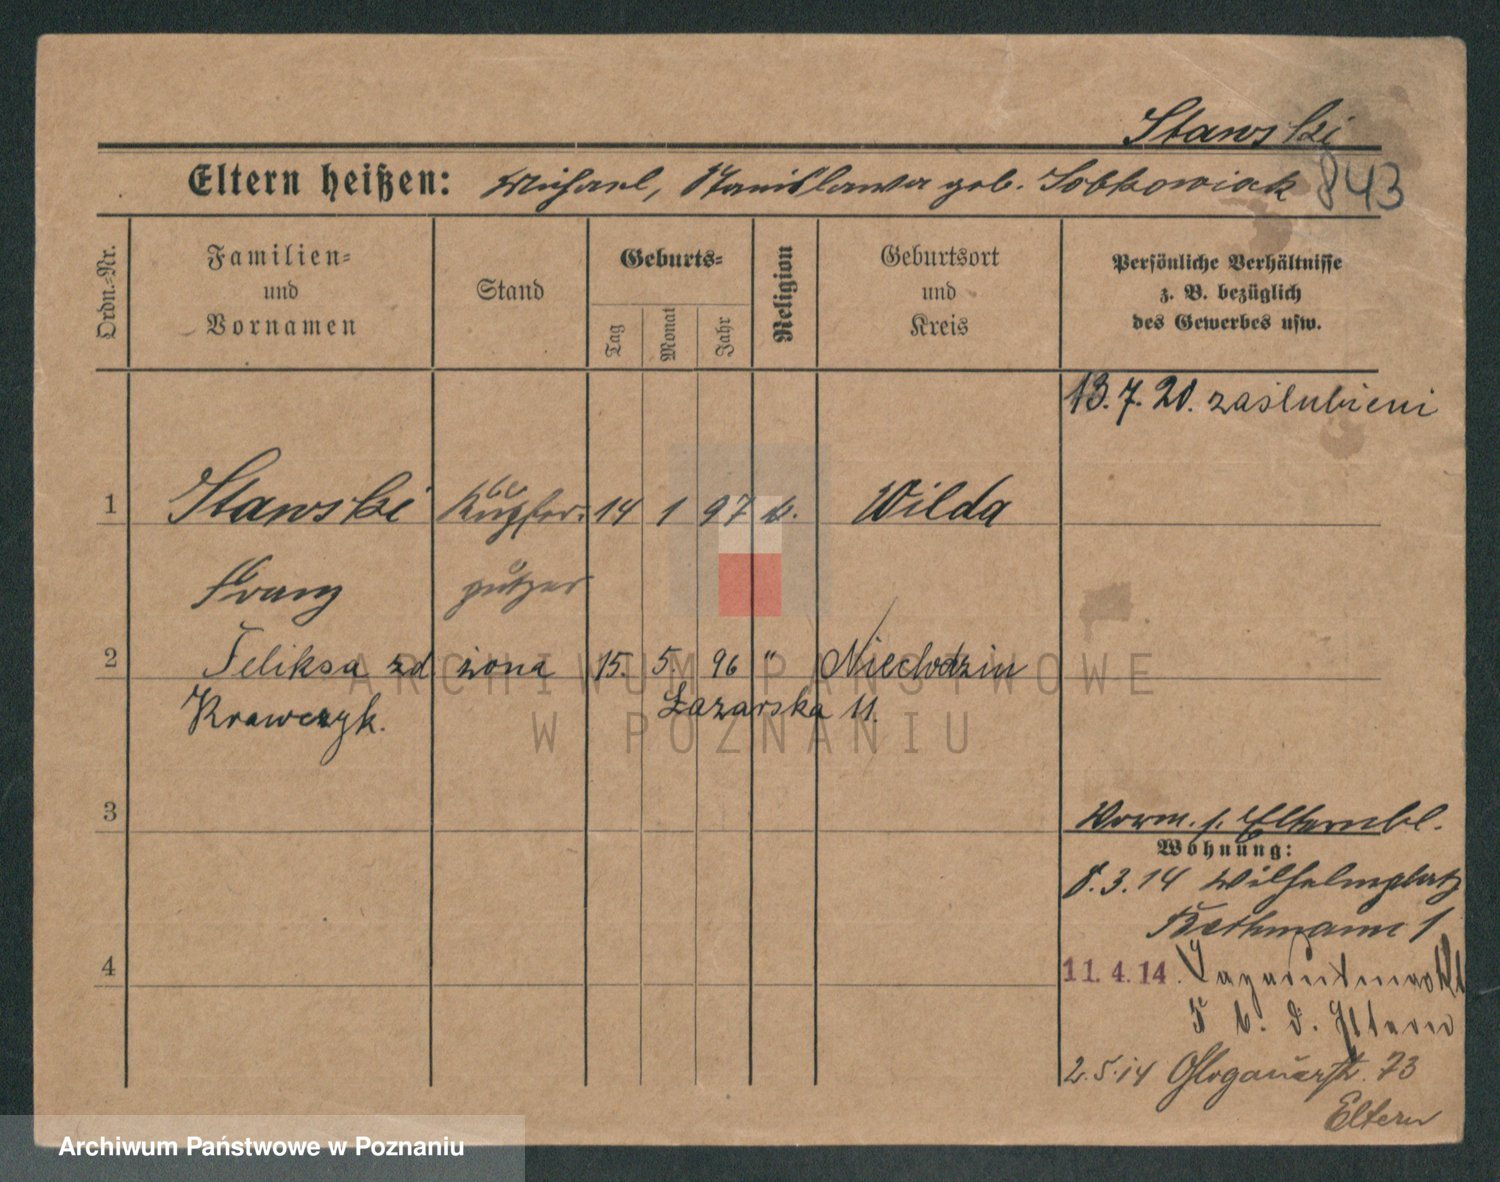 Stawski
Eltern heißen: Michael, Stanislawa geb. Sobkowiak 843
Ordn.-Nr.
Familien- und Vornamen
Stand
Geburts-
Tag
Monat
Jahr
Religion
Geburtsort und Kreis
Persönliche Verhältnisse
z. B. bezüglich
des Gewerbes usw.
13.7.20. zaślubieni
1 Stawski 14 1 97 k. Wilda
Franz
2 Feliksa zd żona 15. 5. 96 " Niechodzin
Krawczyk. Łazarska 11.
3
Vorm. s. Elternbl.
Wohnung:
8.3.14 Wilhelmplatz
Bethmann 1
4
11.4.14.
5 b. d. Eltern
2.5.14 Glogauerstr. 73
Eltern
ARCHIWUM PAŃSTWOWE
W POZNANIU
Archiwum Państwowe w Poznaniu